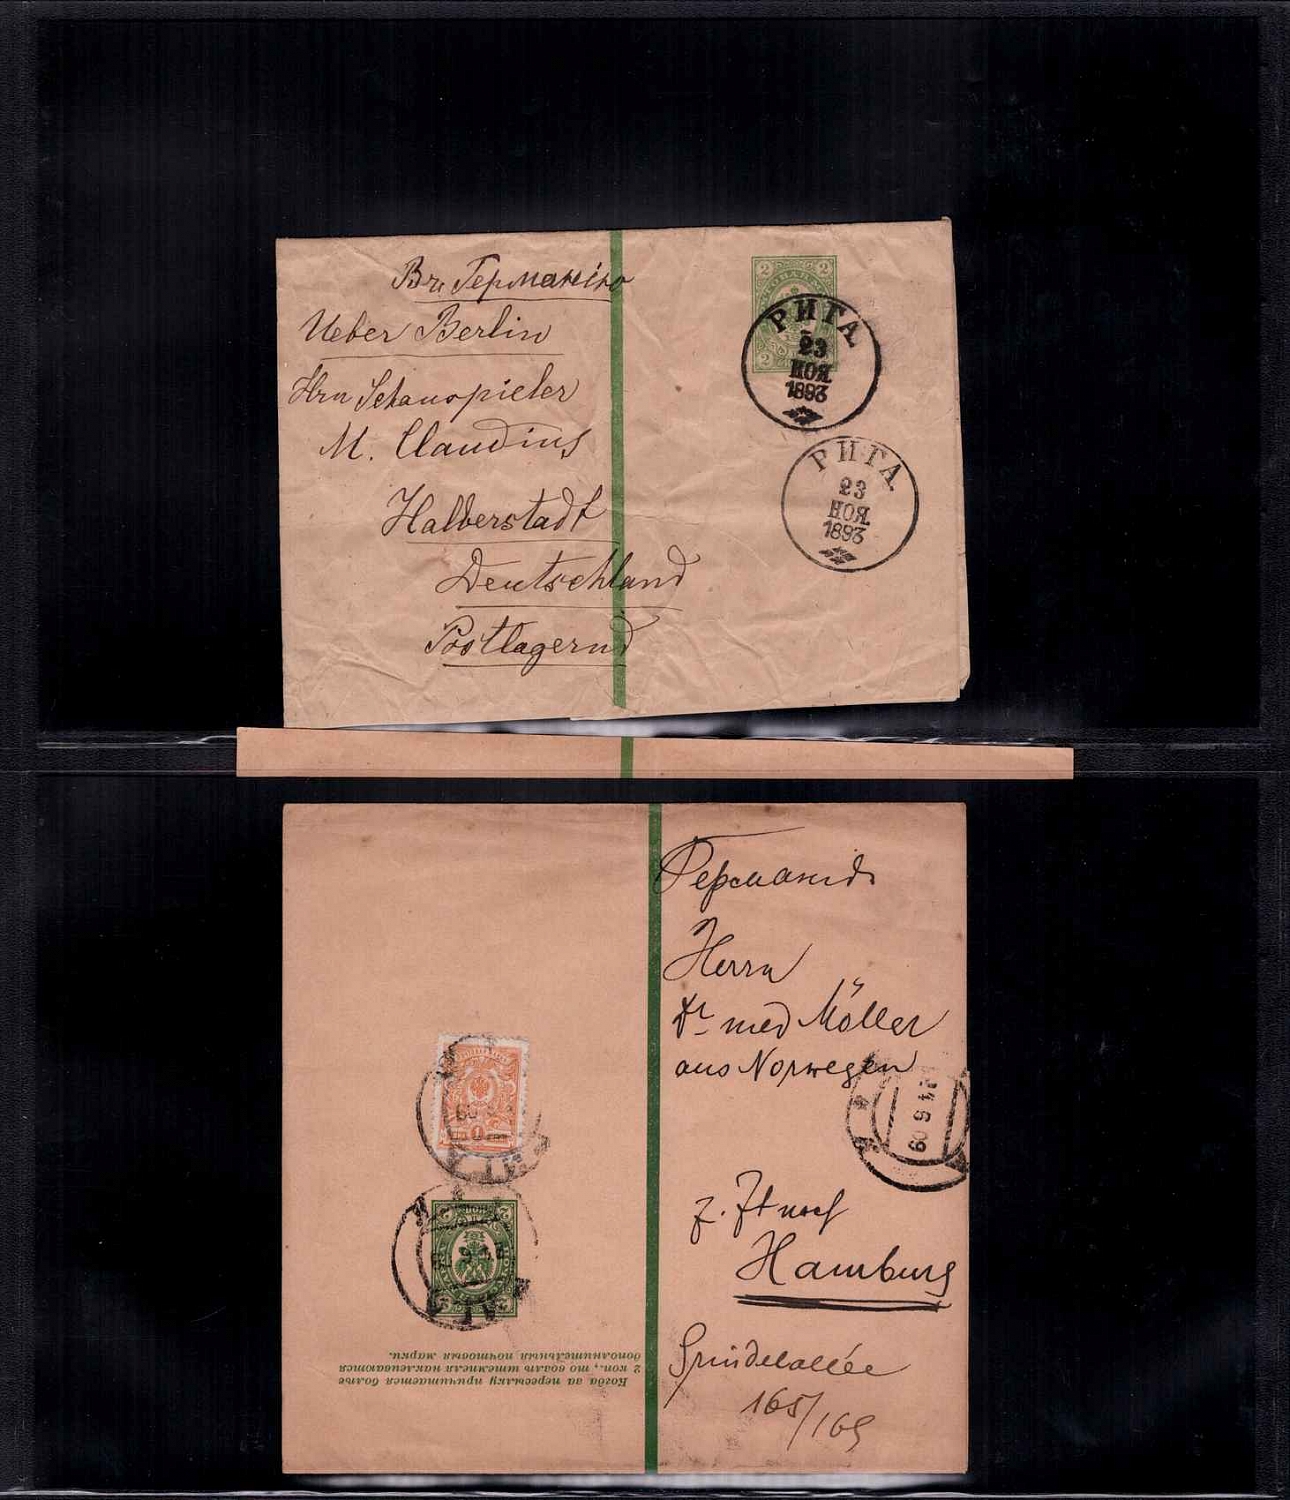 Въ Германію
Ueber Berlin
Hrn Schauspieler
M. Claudius
Halberstadt
Deutschland
Postlagernd
2 2
2
РИГА
23
НОЯ.
1893
РИГА.
23
НОЯ.
1893
Германія
Herrn
Dr med Möller
aus Norwegen
z. Zt noch
Hamburg
165/169
24 6 09
1
Когда за пересылку причитается болѣе
2 коп., то возлѣ штемпеля наклеиваются
дополнительныя почтовыя марки.